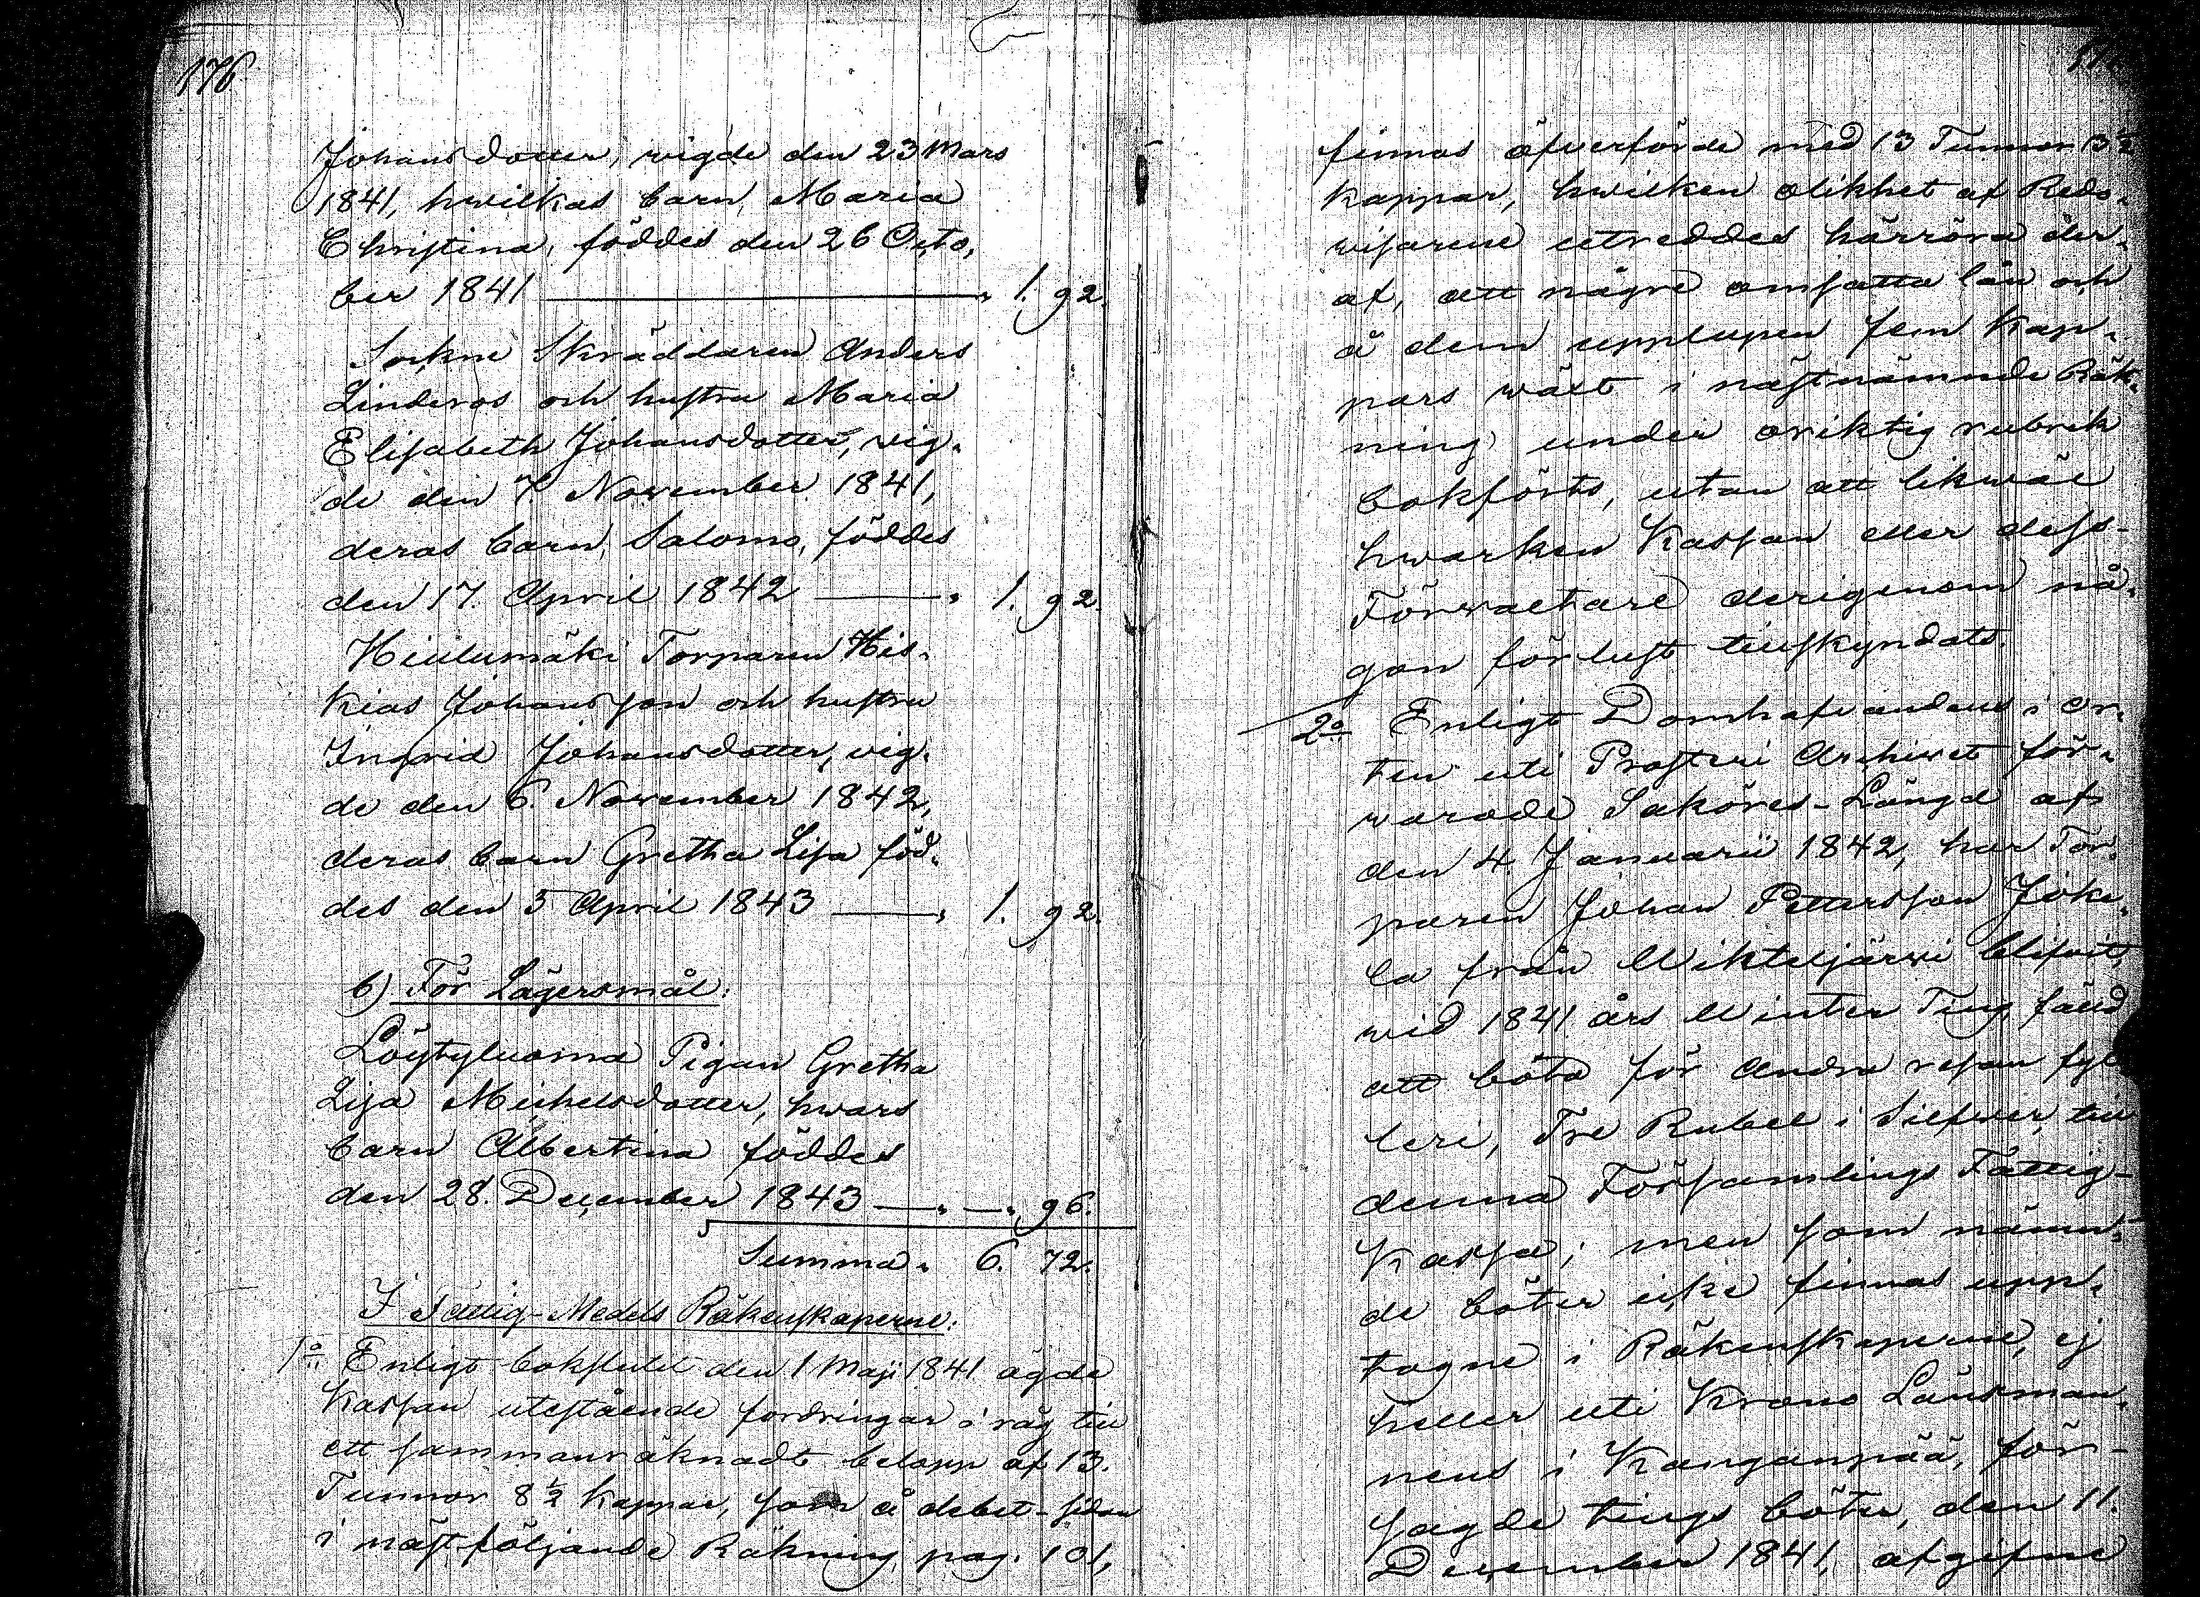 176
Johansdotter, vigde den 23 Mars
1841, hwilkas barn, Maria
Christina, föddes den 26 Octo,
ber 1841 — " 1. 92.
Sockne Skräddaren Anders
Linderos och hustru Maria
Elisabeth Johansdotter, vig,
de den 7. November 1841,
deras barn, Salomo, föddes
den 17 April 1842 — " 1. 92.
Hiulumäki Torparen His,
kias Johansson och hustru
Ingrid Johansdotter, vig,
de den 6. November 1842,
deras barn Gretha Lisa föd,
des den 5 April 1843 — " 1. 92.
b) För Lägersmål:
Löytyluoma Pigan Gretha
Lisa Michelsdotter, hwars
barn Albertina föddes
den 28. December 1843 — " — " 96.
Summa " 6. 72.
I Fattig-Medels Räkenskaperne:
1o Enligt bokslutet den 1 Maji 1841 ägde
Kassan utestående fordringar i råg till
ett sammanräknadt belopp af 13.
Tunnor 8 1/2 kappar, som å debet-sidan
i nästföljande Räkning pag. 101,
finnas öfverförde med 13 Tunnor 13 1/2
kappar, hwilken olikhet af Redo,
visarene utreddes härröra der,
af, att några omsatta lån och
å dem upplupen fem kap,
pars wäxt i nästnämnde Räk,
ning under oriktig rubrik
bokförts, utan att likwäl
hwarken Kassan eller dess
Förwaltare derigenom nå,
gon förlust tillskyndats.
2o Enligt Domhafvandens i or,
ten uti Prosteri Archivet för,
warade Saköres-Längd af
den 4. Januarii 1842, har Tor,
paren Johan Pettersson Joke,
la från Wiktuljärwi blifwit,
wid 1841 års Winter Ting fälld
att böta för andra resan fyl
leri, Tre Rubel i Silfwer till
denna Församlings Fattig-
Kassa; men som nämn,
de böter icke finnas upp,
tagne i Räkenskaperne, ej
heller uti Krono Länsman,
nens i Kangånpää, för-
sagde tings böter, den 11.
December 1841, afgifne